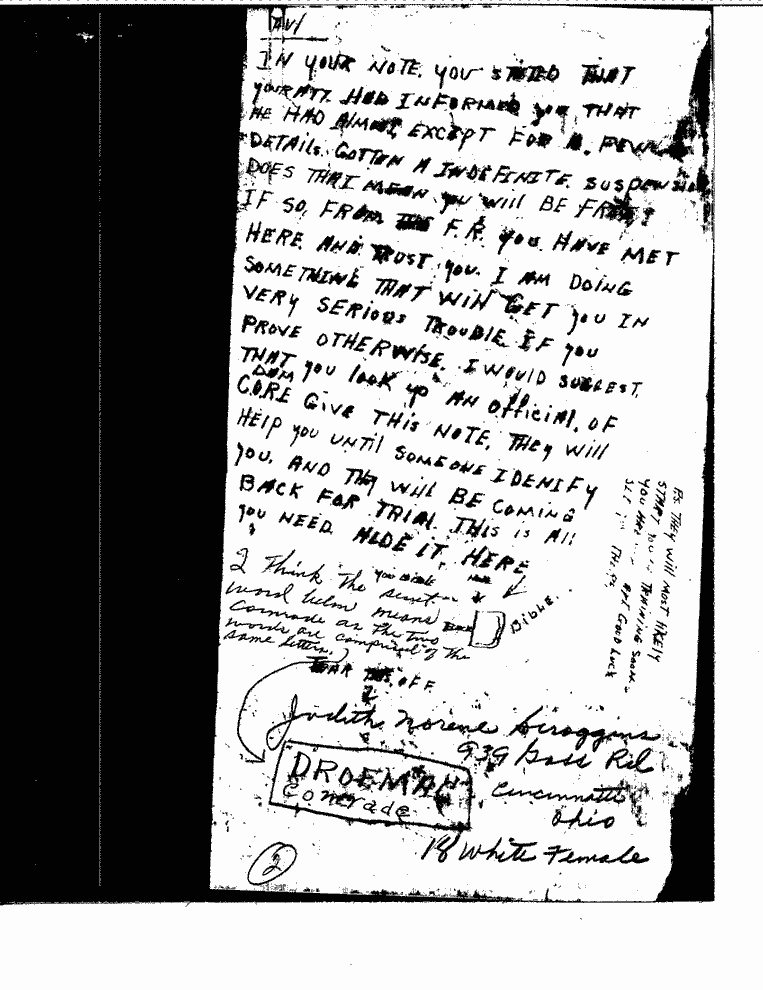 IN YOUR NOTE. YOU STATED THAT
YOUR ATT. HAD INFORMED YOU THAT
HE HAD ALMOST, EXCEPT FOR A. FEW
DETAILS. GOTTEN A INDEFINITE. SUSPENSION
DOES THAT MEAN YOU WILL BE FREE?
IF SO, FROM THE F.R. YOU HAVE MET
HERE. AND TRUST YOU. I AM DOING
SOMETHING THAT WILL GET YOU IN
VERY SERIOUS TROUBLE IF YOU
PROVE OTHERWISE. I WOULD SUGGEST.
THAT YOU LOOK UP AN OFFICIAL. OF
CORE GIVE THIS NOTE. THEY WILL
HELP YOU UNTIL SOMEONE IDENIFY
YOU. AND THEY WILL BE COMING
BACK FOR TRIAL. THIS IS All
YOU NEED. HIDE IT. HERE
I Think the secret
word below means
Comrade as the two
words are comprised of the
same letters.
Bible.
PS. THEY WILL MOST LIKELY
START YOUR TRAINING SOON.
YOU ARE
GOOD LUCK
TEAR THIS OFF
Judith Norene Scroggins
939 Rd
DROEMAC
Comrade
Cincinnatti
Ohio
18 White Female
2